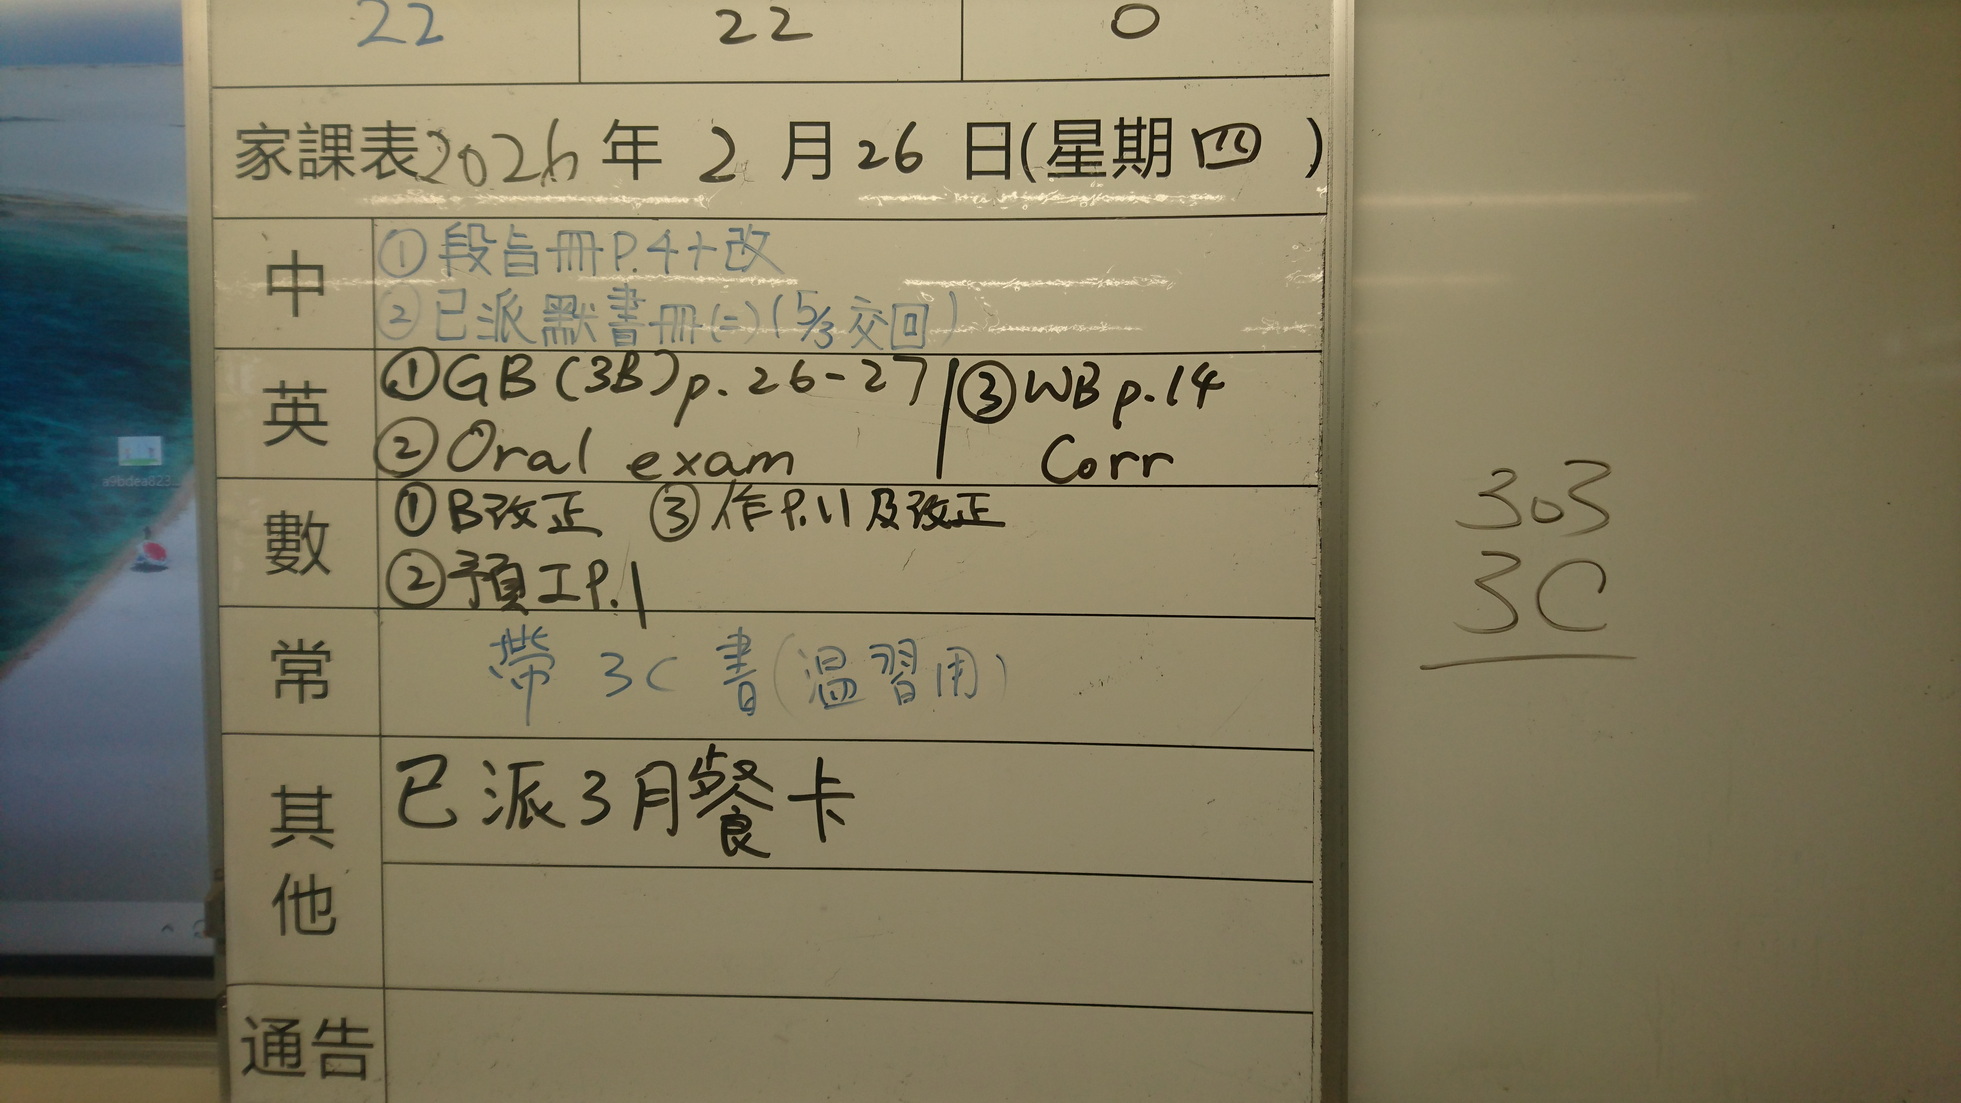 22 22 0
家課表2026年2月26日(星期四)
中
①段旨冊P.4+改
②已派默書冊(二)(5/3交回)
英
①GB(3B)p.26-27
②Oral exam
③WB p.14
Corr
數
①B改正 ③作P.11及改正
②預工P.1
常
帶3C書(温習用)
其他
已派3月餐卡
通告
303
3C
a9bdea823...